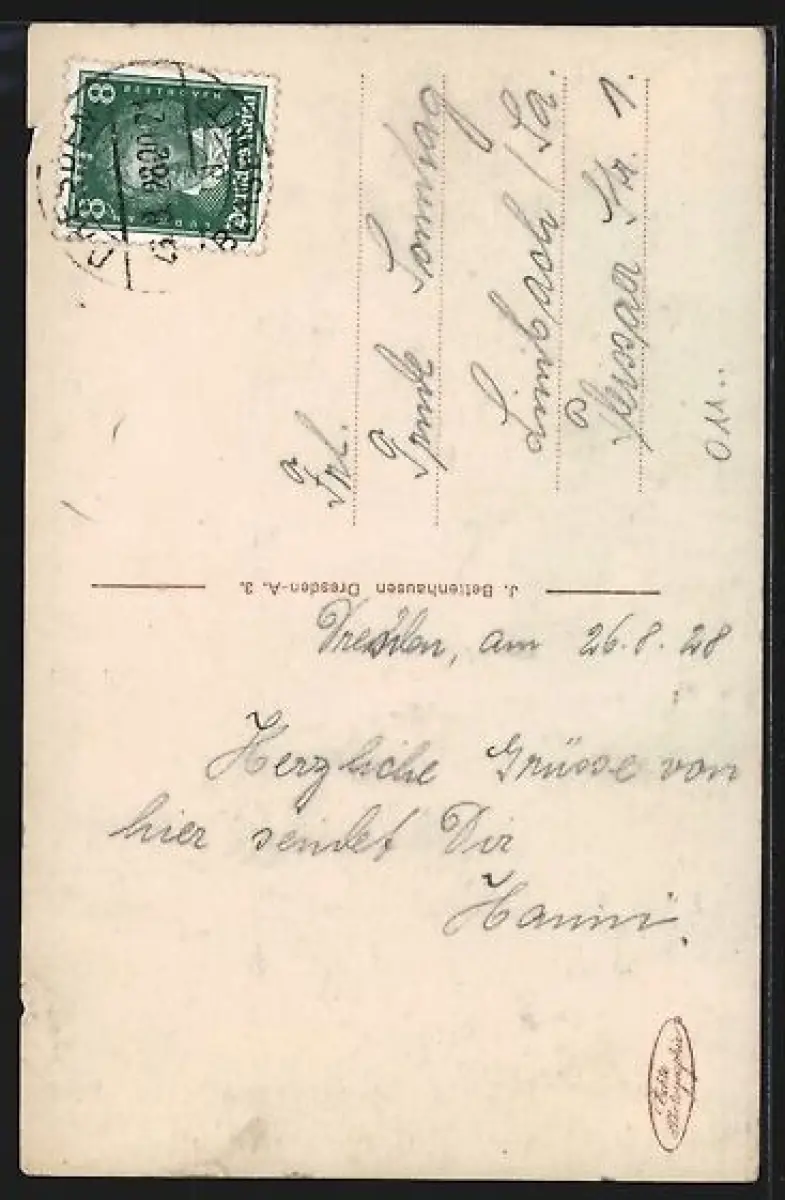 8
8
Deutsches Reich
DRESDEN
28.20-21
Frl.
Sonntag
Limbach / Sa.
Str. 1.
J. Bettenhausen Dresden-A. 3.
Dresden, am 26.8.28
Herzliche Grüsse von
hier sendet Dir
Hanni.
Echte
Photographie